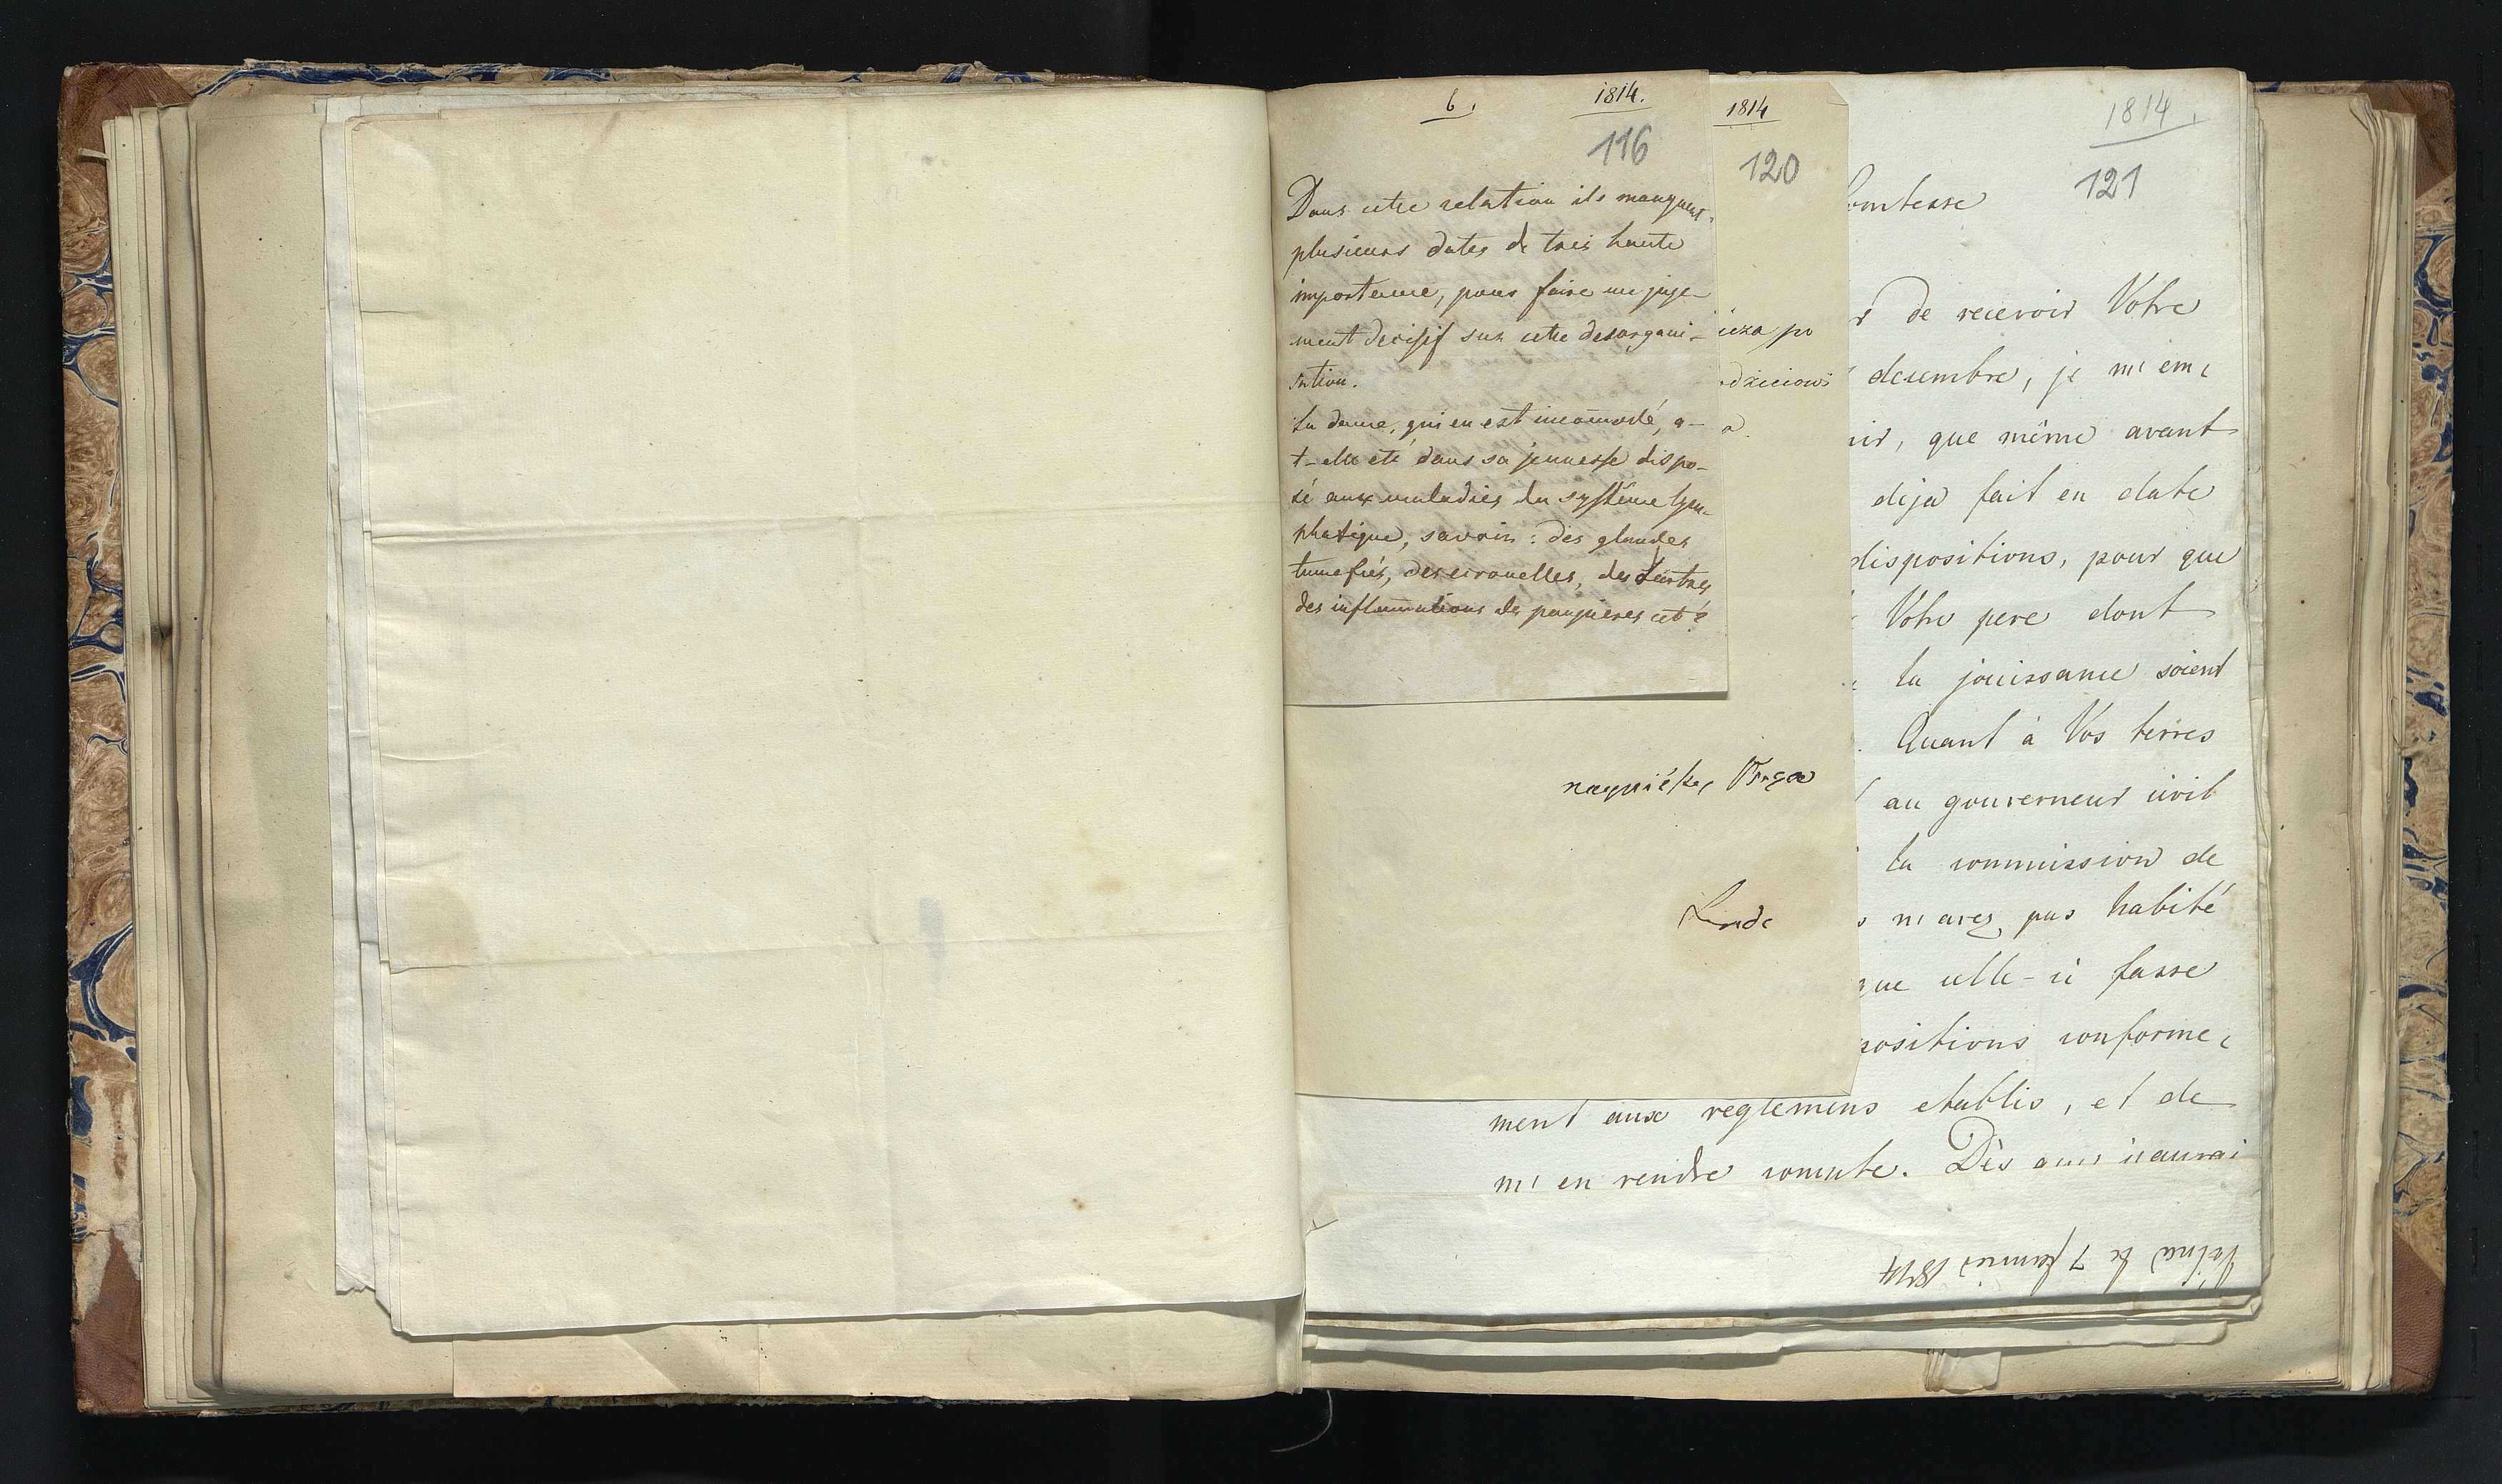 6.
1814.
116
Dans cette relation ils manquent
plusieurs dates de tres haute
importence, pour faire un juge-
ment decisif sur cette desorgani-
sation.
La dame, qui en est incomodé, a-
t-elle eté dans sa jeunesse dispo-
sé aux maladies du systême lym-
phatique, savoir: des glandes
tumefiés, des ecrouelles, des dartres
des inflammations des paupieres cet?
1814
120
icza po
dzieiowi
a.
Linde
1814.
121
omtesse
de recevoir Votre
decembre, je m'em-
que même avant
deja fait en date
dispositions, pour que
Votre pere dont
la jouissance soient
Quant à Vos terres
au gouverneur civil
la commission de
n'avez pas habité
que celle-ci fasse
positions conforme-
ment aux reglemens etablis, et de
m'en rendre compte. Dès que j'aurai
Vilna le 7 janvier 1814